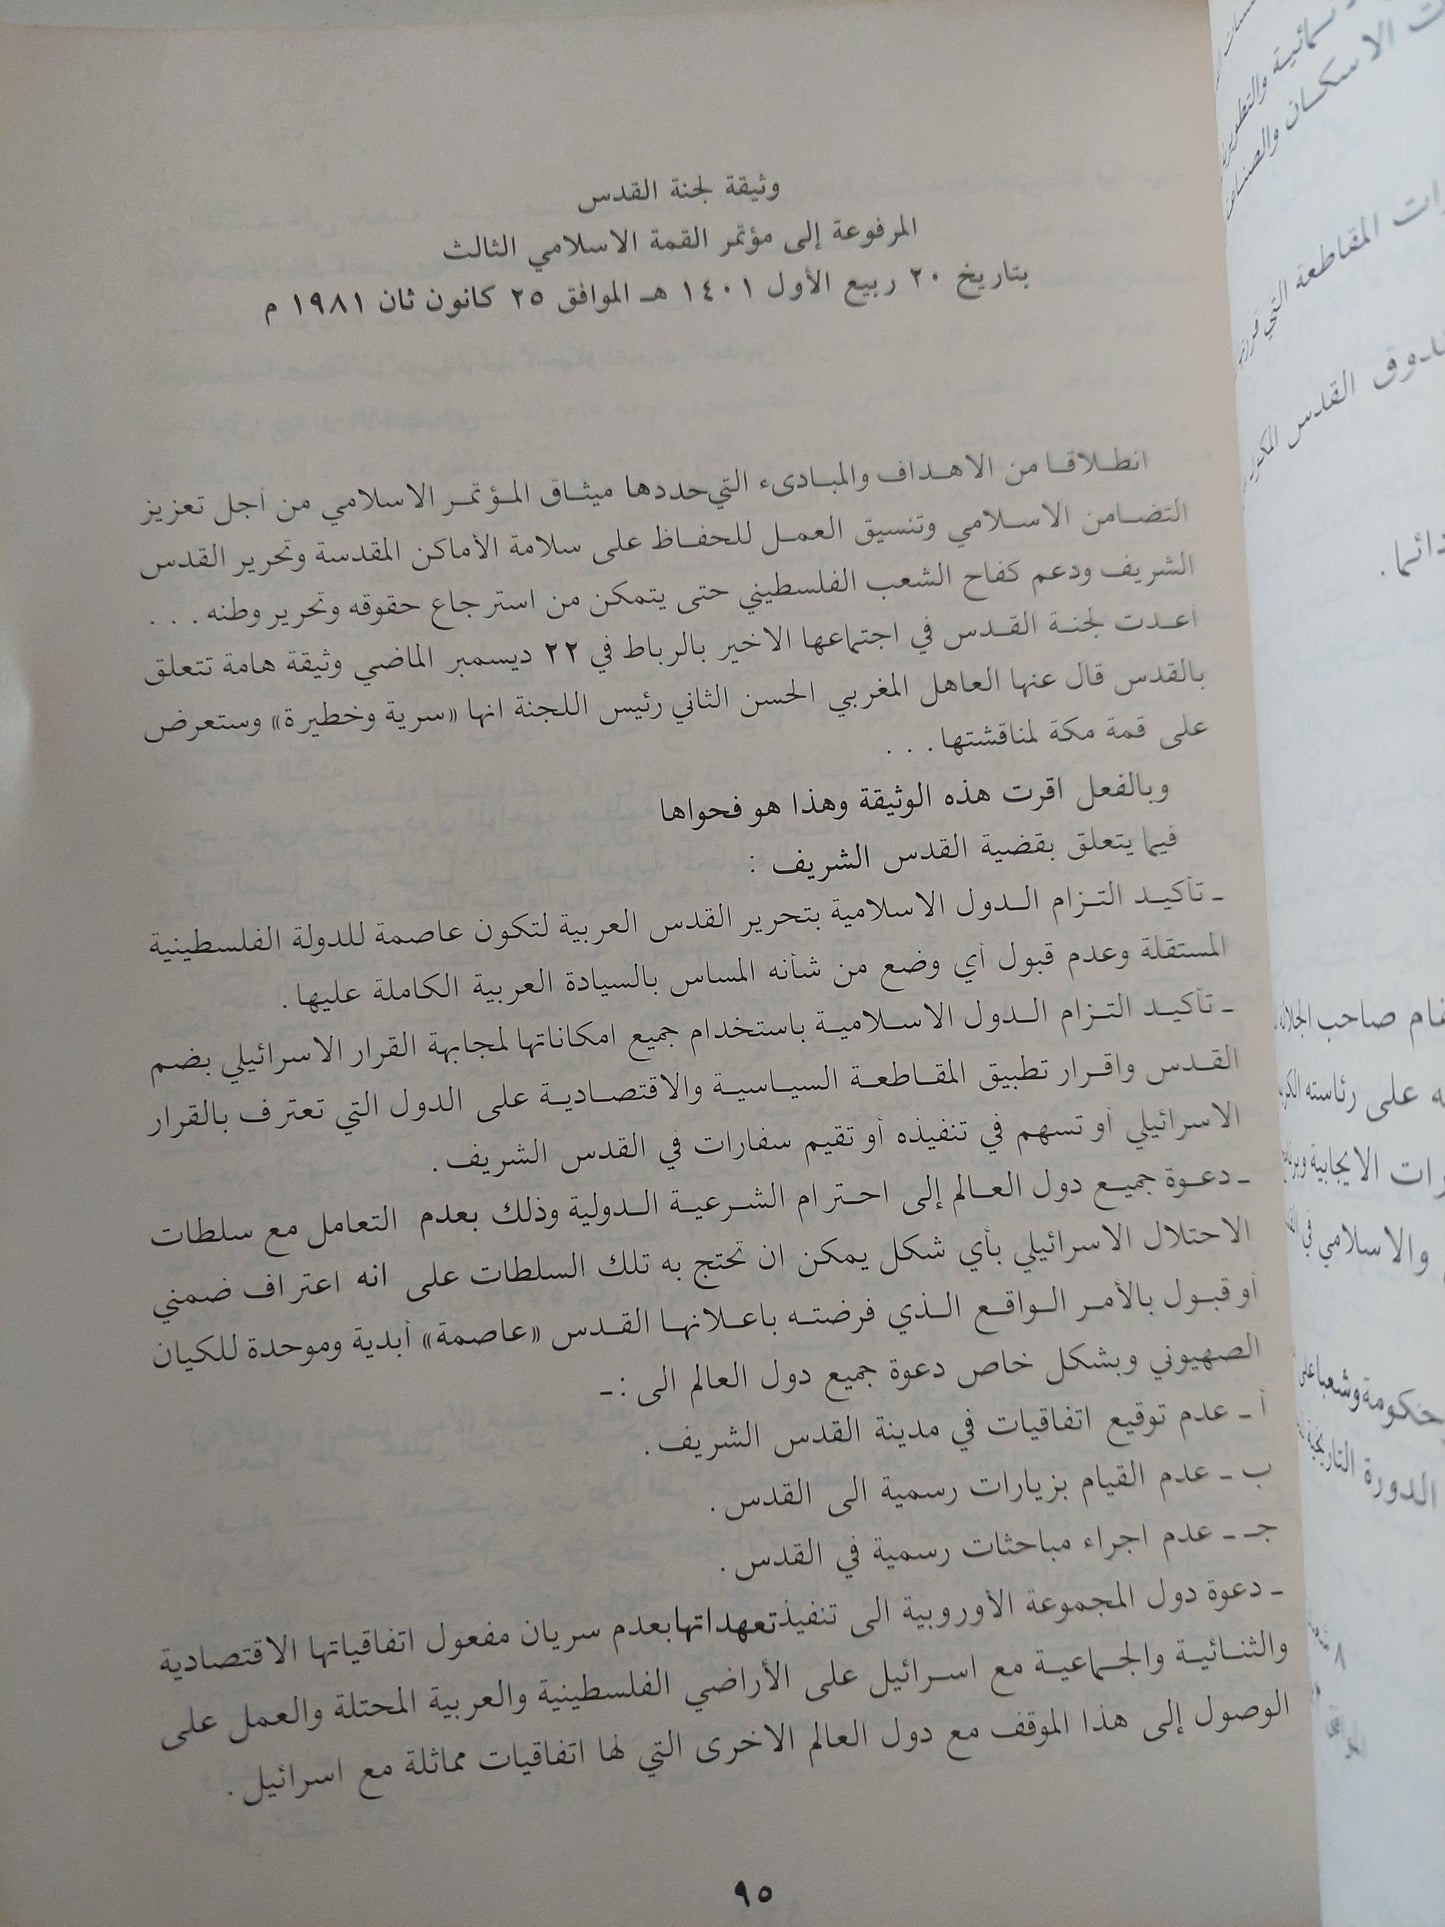 وثيقة لجنة القدس
المرفوعة إلى مؤتمر القمة الاسلامي الثالث
بتاريخ ٢٠ ربيع الأول ١٤٠١ هـ الموافق ٢٥ كانون ثان ١٩٨١ م
انطلاقا من الاهداف والمبادىء التي حددها ميثاق المؤتمر الاسلامي من أجل تعزيز
التضامن الاسلامي وتنسيق العمل للحفاظ على سلامة الأماكن المقدسة وتحرير القدس
الشريف ودعم كفاح الشعب الفلسطيني حتى يتمكن من استرجاع حقوقه وتحرير وطنه . . .
أعدت لجنة القدس في اجتماعها الاخير بالرباط في ٢٢ ديسمبر الماضي وثيقة هامة تتعلق
بالقدس قال عنها العاهل المغربي الحسن الثاني رئيس اللجنة انها «سرية وخطيرة» وستعرض
على قمة مكة لمناقشتها . . .
وبالفعل اقرت هذه الوثيقة وهذا هو فحواها
فيما يتعلق بقضية القدس الشريف :
ـ تأكيد التزام الدول الاسلامية بتحرير القدس العربية لتكون عاصمة للدولة الفلسطينية
المستقلة وعدم قبول أي وضع من شأنه المساس بالسيادة العربية الكاملة عليها .
ـ تأكيد التزام الدول الاسلامية باستخدام جميع امكاناتها لمجابهة القرار الاسرائيلي بضم
القدس واقرار تطبيق المقاطعة السياسية والاقتصادية على الدول التي تعترف بالقرار
الاسرائيلي أو تسهم في تنفيذه أو تقيم سفارات في القدس الشريف .
ـ دعوة جميع دول العالم إلى احترام الشرعية الدولية وذلك بعدم التعامل مع سلطات
الاحتلال الاسرائيلي بأي شكل يمكن ان تحتج به تلك السلطات على انه اعتراف ضمني
أو قبول بالأمر الواقع الذي فرضته باعلانها القدس «عاصمة» أبدية وموحدة للكيان
الصهيوني وبشكل خاص دعوة جميع دول العالم الى :ـ
أ ـ عدم توقيع اتفاقيات في مدينة القدس الشريف .
ب ـ عدم القيام بزيارات رسمية الى القدس .
جـ ـ عدم اجراء مباحثات رسمية في القدس .
ـ دعوة دول المجموعة الأوروبية الى تنفيذ تعهداتها بعدم سريان مفعول اتفاقياتها الاقتصادية
والثنائية والجماعية مع اسرائيل على الأراضي الفلسطينية والعربية المحتلة والعمل على
الوصول إلى هذا الموقف مع دول العالم الاخرى التي لها اتفاقيات مماثلة مع اسرائيل .
٩٥
والتطويرية
الاسكان
المقاطعة التي
القدس
صاحب
على رئاسته
الايجابية
والاسلامي في
الدورة التاريخية